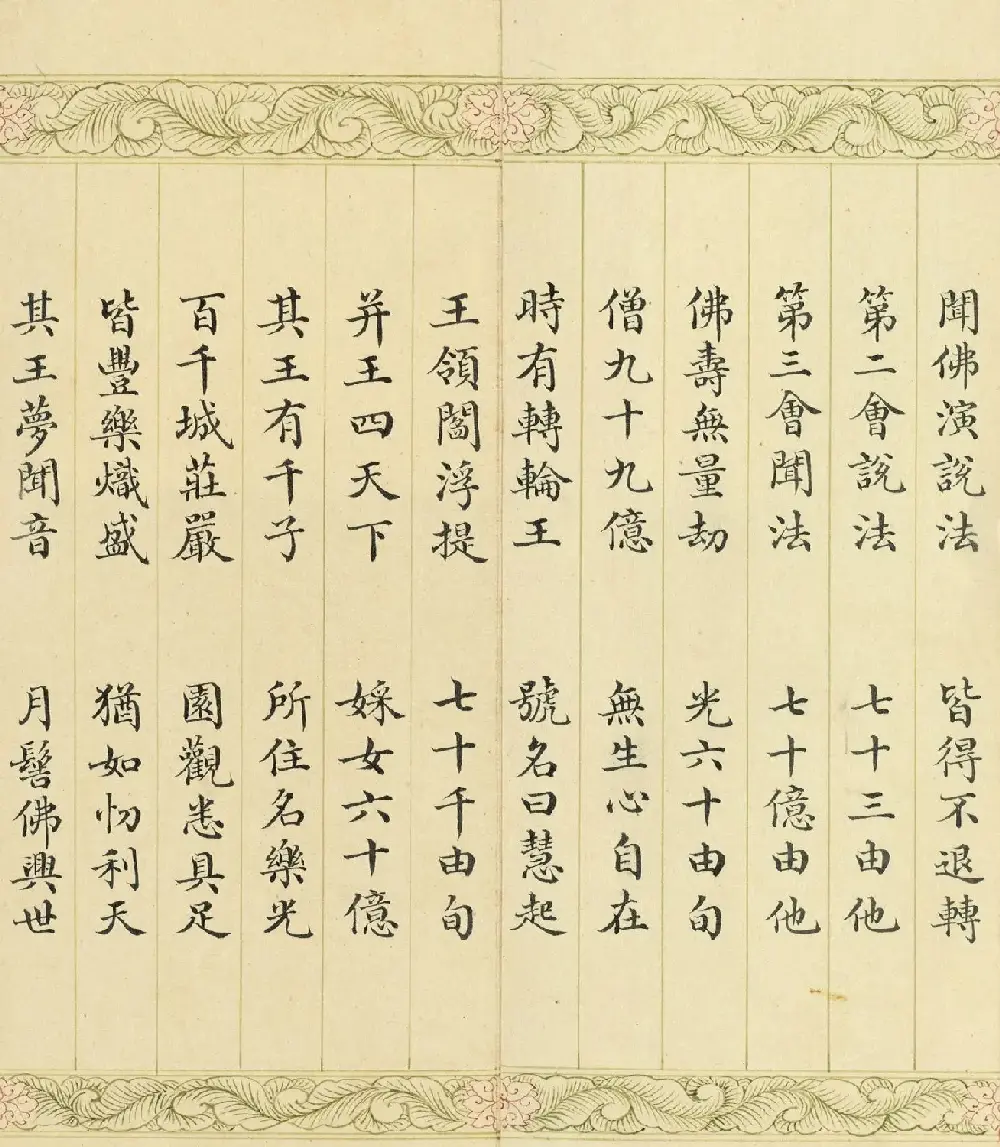 聞佛演說法　皆得不退轉
第二會說法　七十三由他
第三會聞法　七十億由他
佛壽無量劫　光六十由旬
僧九十九億　無生心自在
時有轉輪王　號名曰慧起
王領閻浮提　七十千由旬
并王四天下　婇女六十億
其王有千子　所住名樂光
百千城莊嚴　園觀悉具足
皆豐樂熾盛　猶如忉利天
其王夢聞音　月髻佛興世